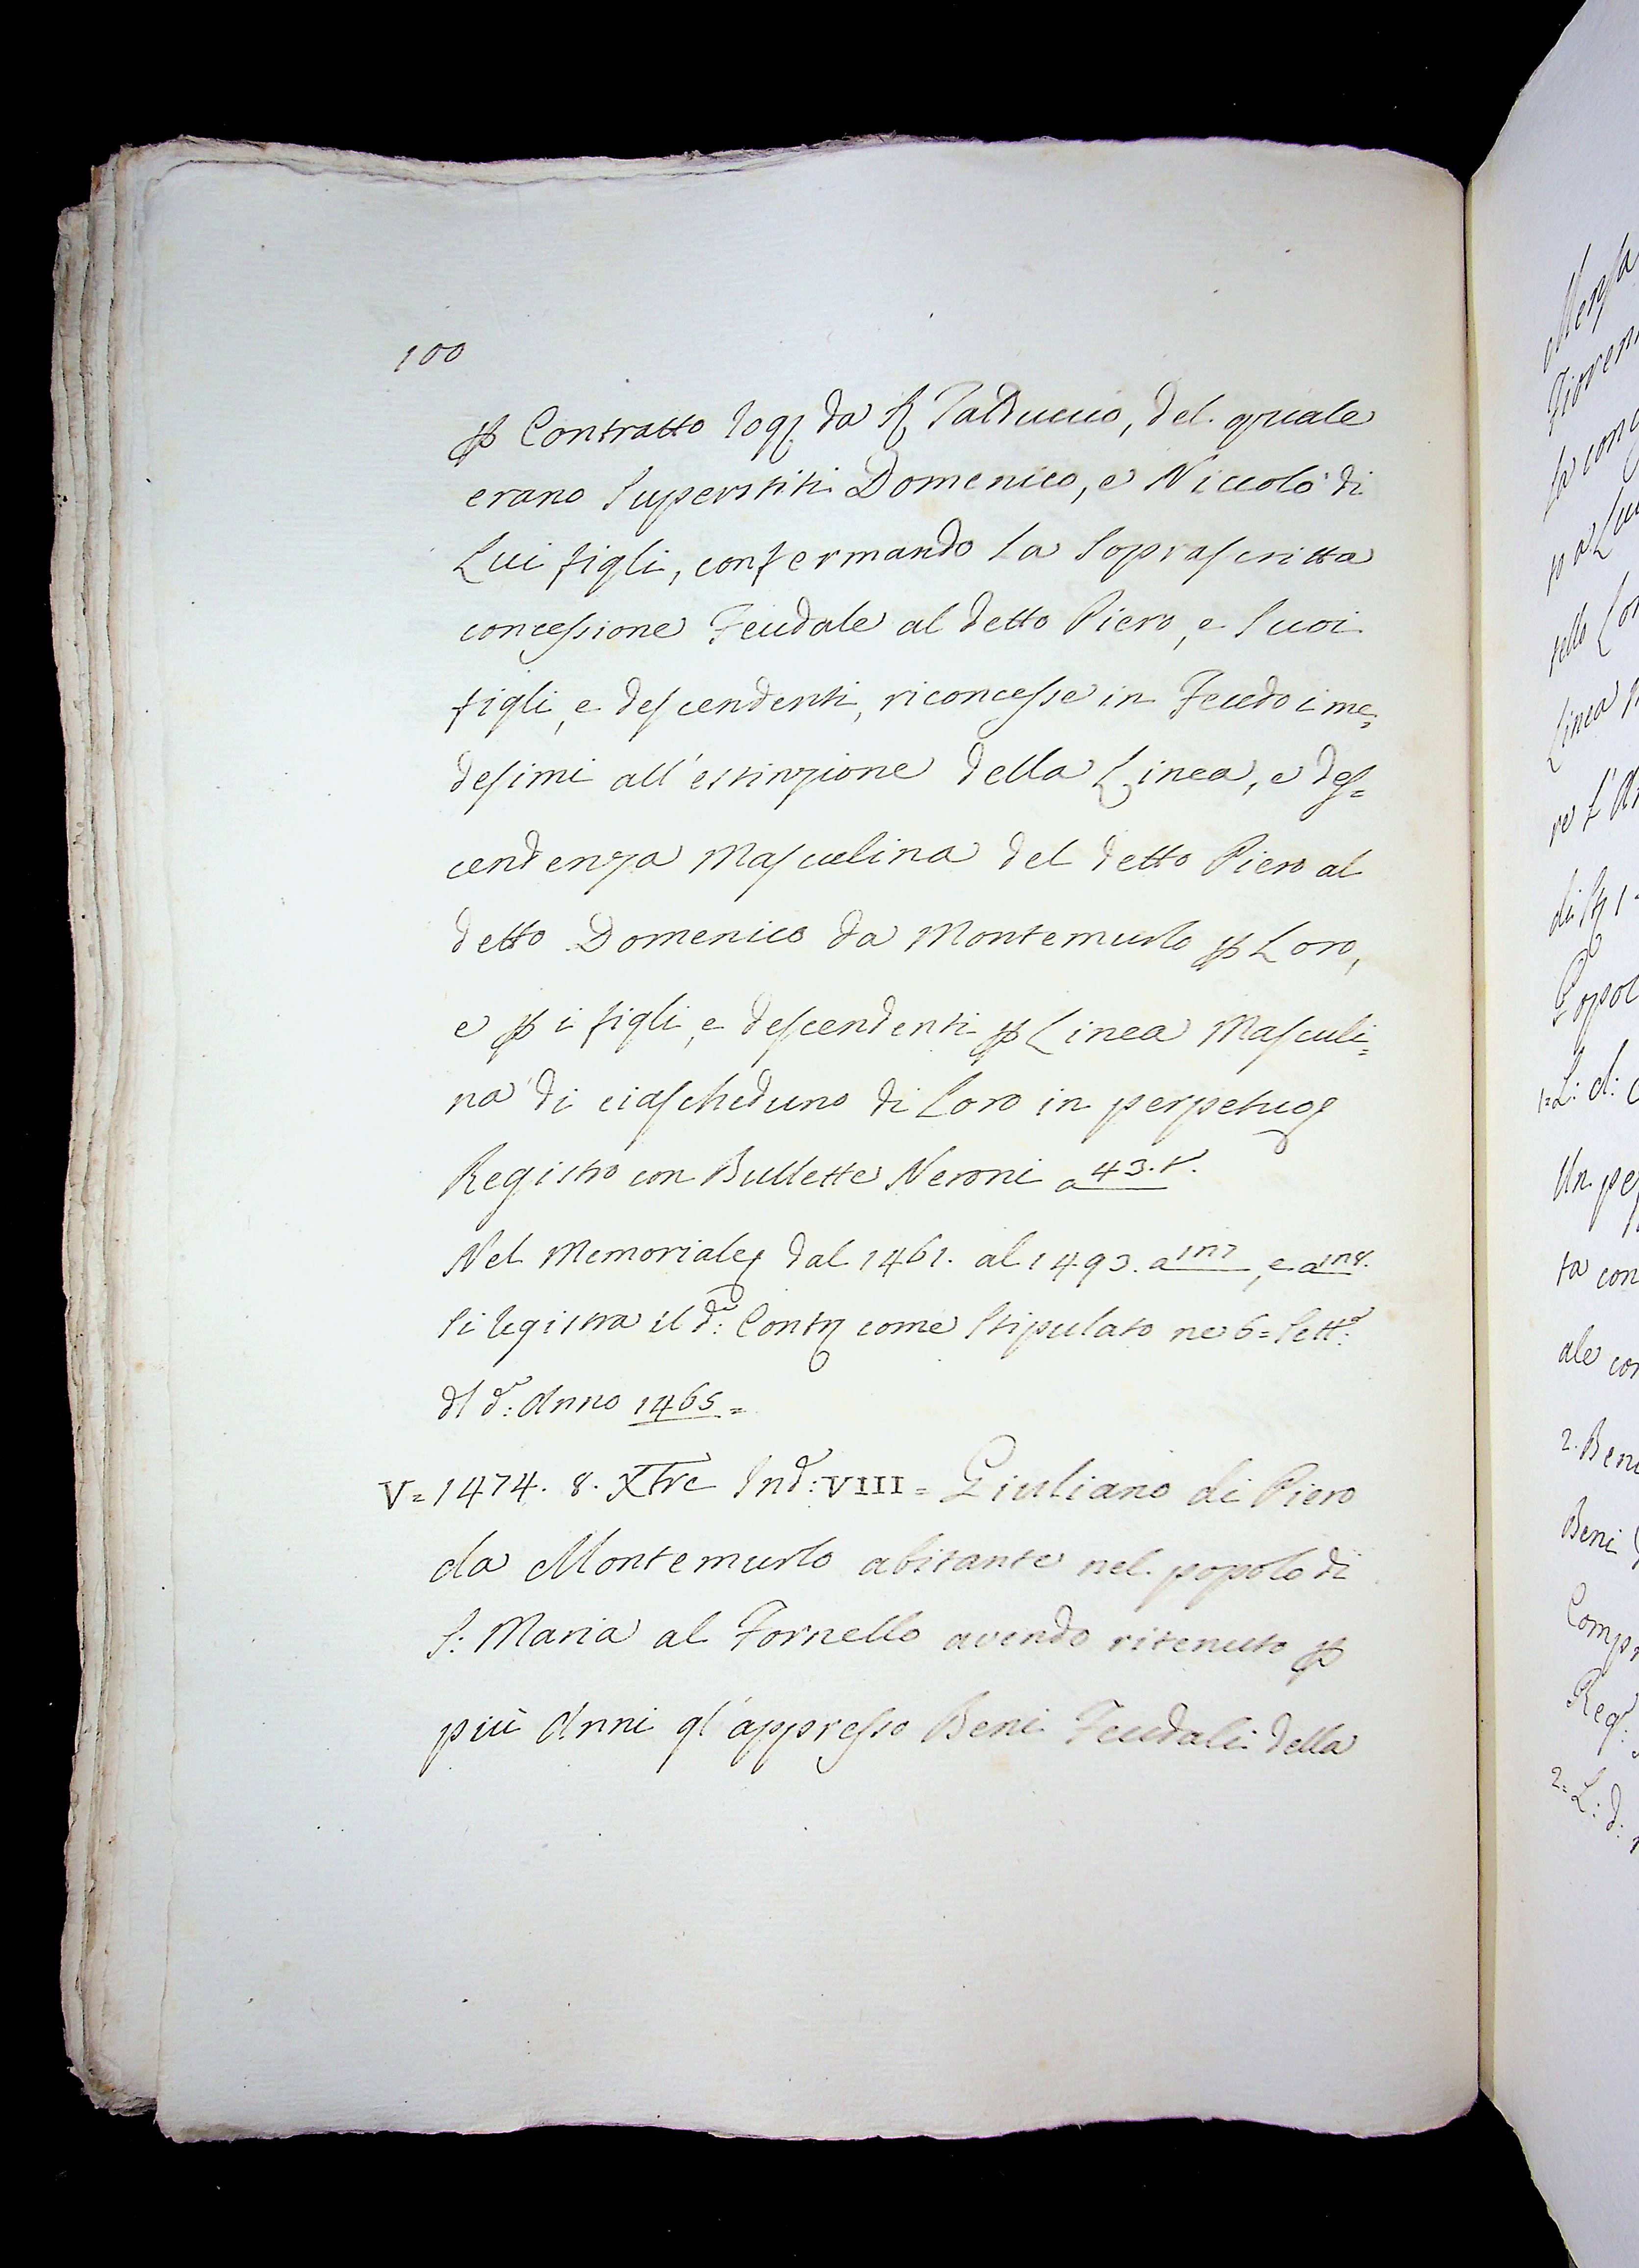 100
ꝑ Contratto rog da S Palduccio, del quale
erano Superstiti Domenico, e Niccolò di
Lui figli, confermando la Soprascritta
concessione Feudale al detto Piero, e Suoi
figli, e descendenti, riconcesse in Feudo i me=
desimi all'estinzione della Linea, e des=
cendenza Masculina del detto Piero al
detto Domenico da Montemurlo ꝑ Loro,
e ꝑ i figli, e descendenti ꝑ Linea Masculi=
na di ciascheduno di Loro in perpetuo
Registro con Bullette Neroni a 43. t.
Nel Memoriale dal 1461. al 1493. a 117, e a 118.
Si registra il d.º: Contr come Stipulato ne 6= Sett.e:
dl d.º: Anno 1465=
V=1474. 8. Xbre Ind: VIII= Giuliano di Piero
da Montemurlo abitante nel popolo di
S: Maria al Fornello avendo ritenuto ꝑ
più Anni gl'appresso Beni Feudali della
Mensa
Fioren
la con
po a Lu
nello
Linea
re L'A
di
Popol
1=L: d:
Un pe
ta con
ale con
2. Beni
Beni
Comp
Reg:
2=L: d: